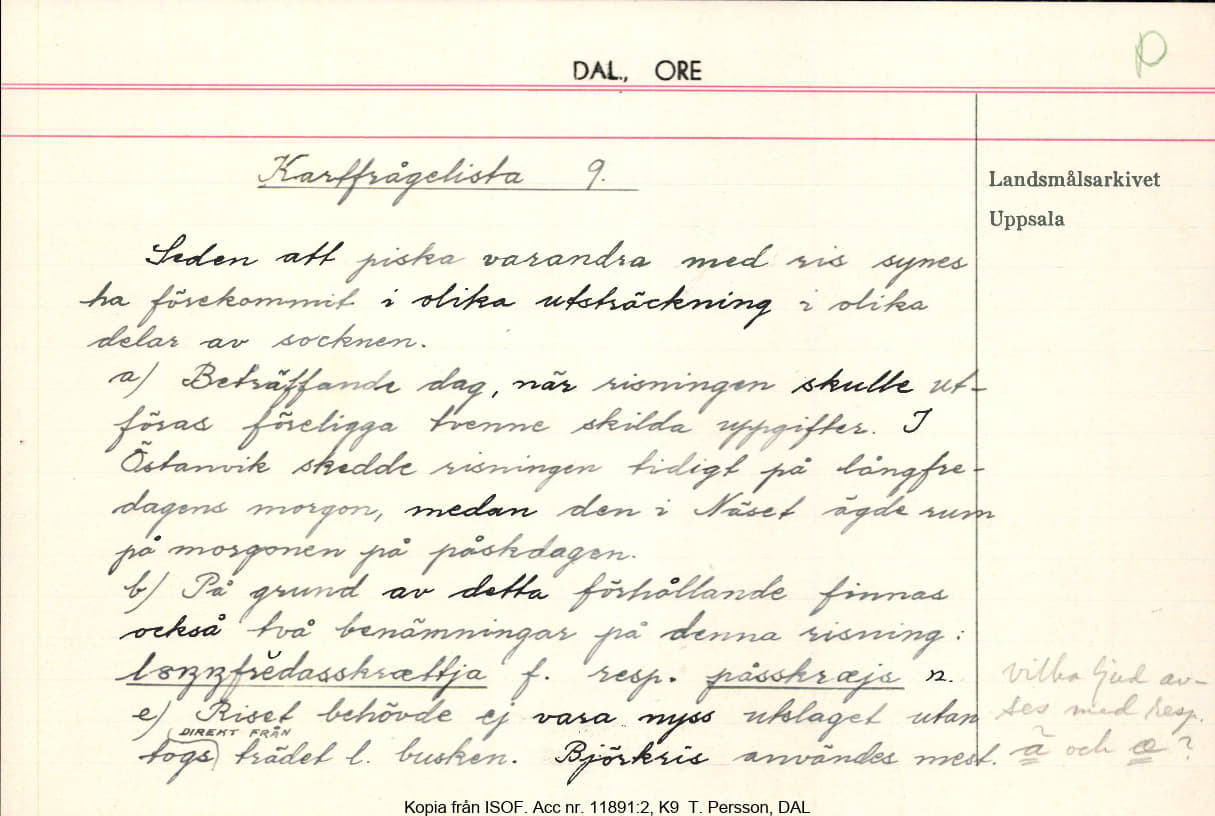 p
DAL., ORE
Kortfrågelista 9.
Landsmålsarkivet
Uppsala
Seden att piska varandra med ris synes
ha förekommit i olika utsträckning i olika
delar av socknen.
a) Beträffande dag, när risningen skulle ut-
föras föreligga tvenne skilda uppgifter. I
Östanvik skedde risningen tidigt på långfre-
dagens morgon, medan den i Näset ägde rum
på morgonen på påskdagen.
b) På grund av detta förhållande finnas
också två benämningar på denna risning:
f. resp. påsskræjs n.
e) Riset behövde ej vara nyss utslaget utan
DIREKT FRÅN
togs trädet l. busken. Björkris användes mest.
vilka ljud av-
ses med resp.
ä och æ?
Kopia från ISOF. Acc nr. 11891:2, K9 T. Persson, DAL